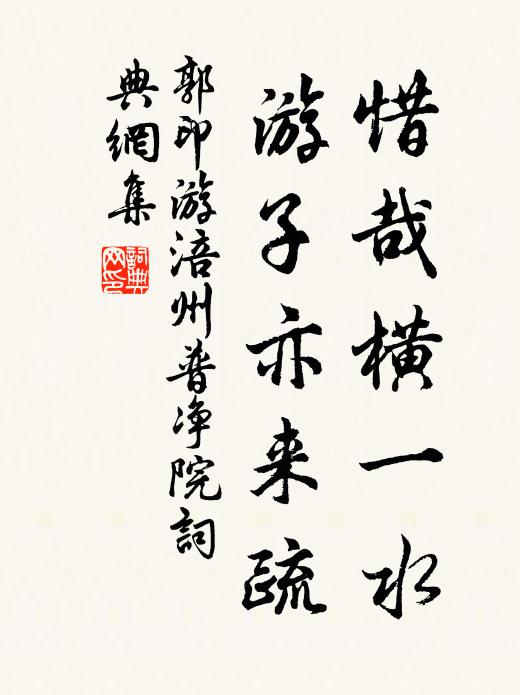 惜哉横一水
游子亦来疏
郭印游涪州普净院詞
典網集
詞典网印